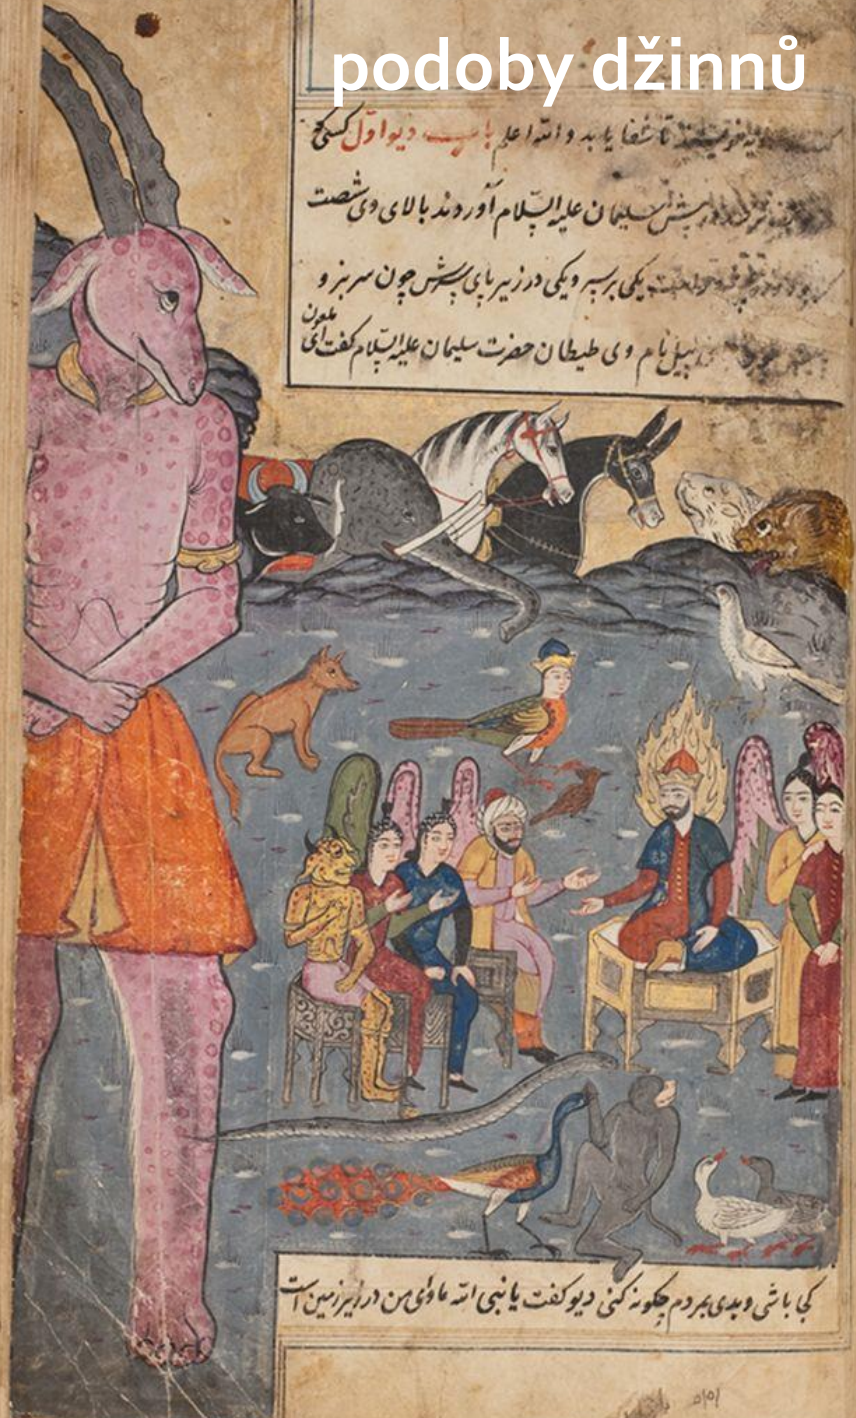 podoby džinnů
تا شفا یابد و الله اعلم باب دیو اوّل کسی کو
پیش سلیمان علیه السّلام آوردند بالای وی شصت
یکی بر سر و یکی در زیر پای سرش چون سر بز و
نام وی طیطان حضرت سلیمان علیه السّلام گفت ای ملعون
کجا باشی و بدی بمردم چگونه کنی دیو گفت یا نبی الله ماوای من در زیر زمین است